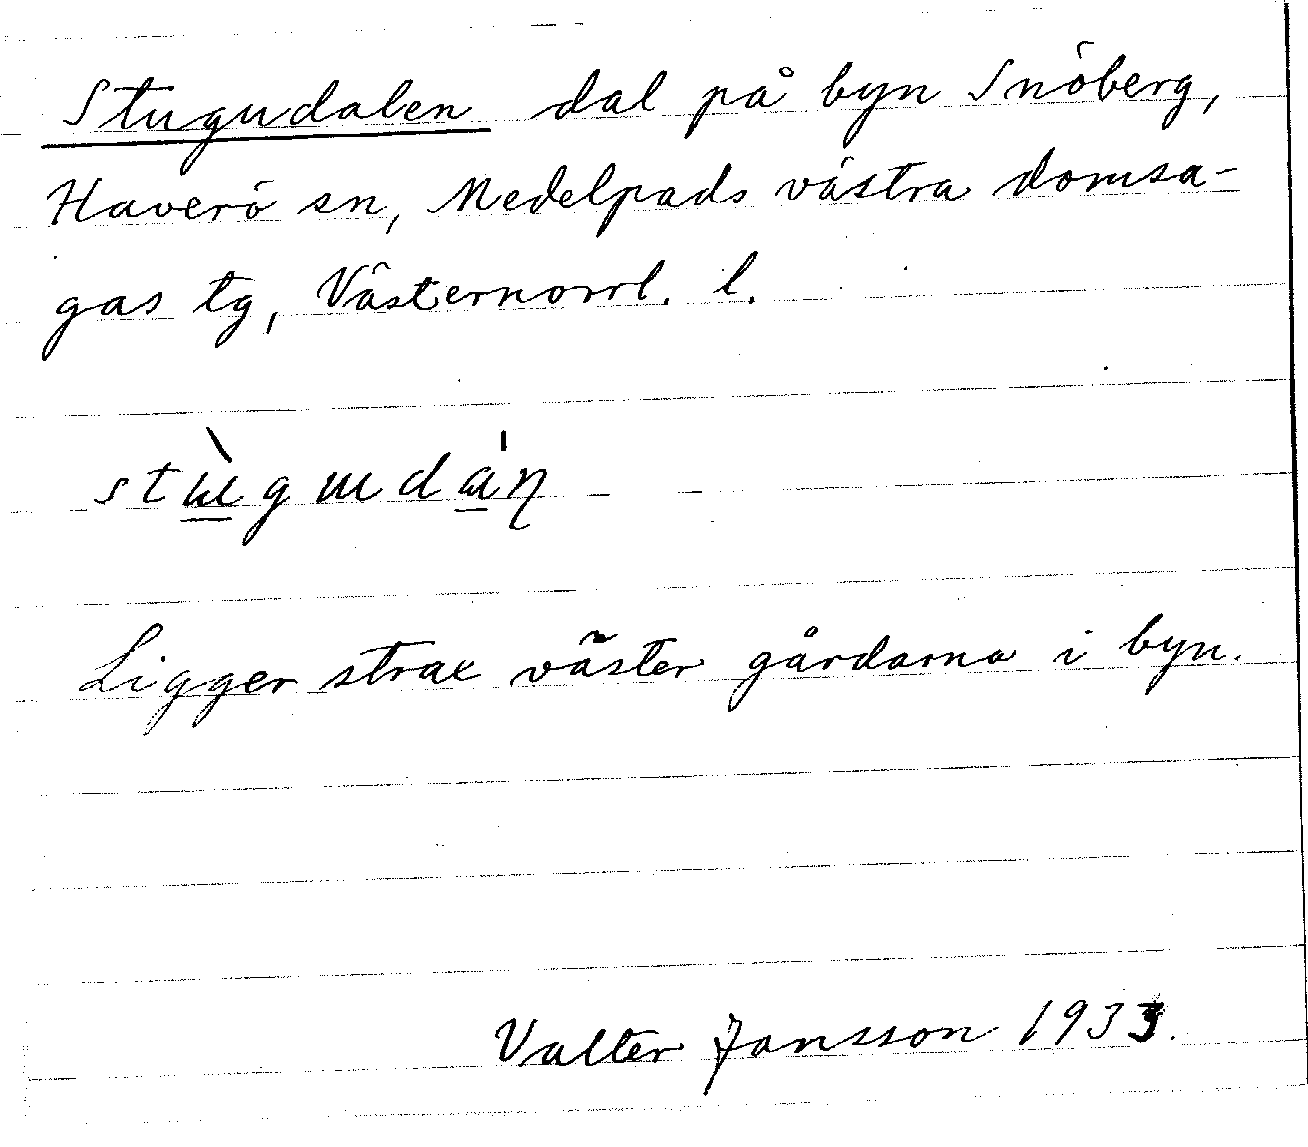 Stugudalen dal på byn Snöberg,
Haverö sn, Medelpads västra domsa-
gas tg, Västernorrl. l.
stɯ̀gɯdáṇ
Ligger strax väster gårdarna i byn.
Valter Jansson 1933.